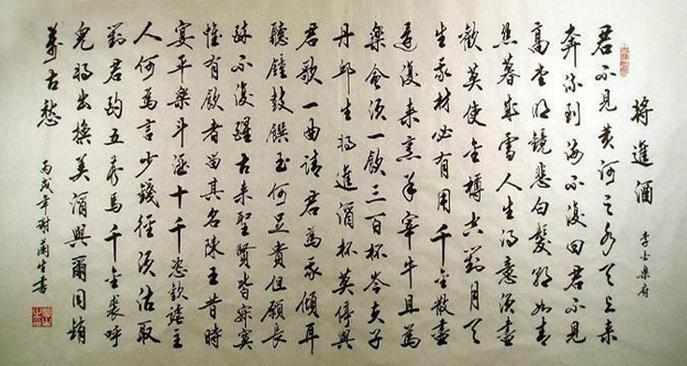 將進酒
李 樂府
君不見黃河之水天上來
奔流到海不復回君不見
高堂明鏡悲白髮朝如青
絲暮成雪人生得意須盡
歡莫使金樽空對月天
生我材必有用千金散盡
還復來烹羊宰牛且為
樂會須一飲三百杯岑夫子
丹邱生將進酒杯莫停與
君歌一曲請君為我傾耳
聽鐘鼓饌玉何足貴但願長
醉不復醒古來聖賢皆寂寞
惟有飲者留其名陳王昔時
宴平樂斗酒十千恣歡謔主
人何為言少錢徑須沽取
對君酌五花馬千金裘呼
兒將出換美酒與爾同銷
萬古愁
丙戌年謝蘭生書